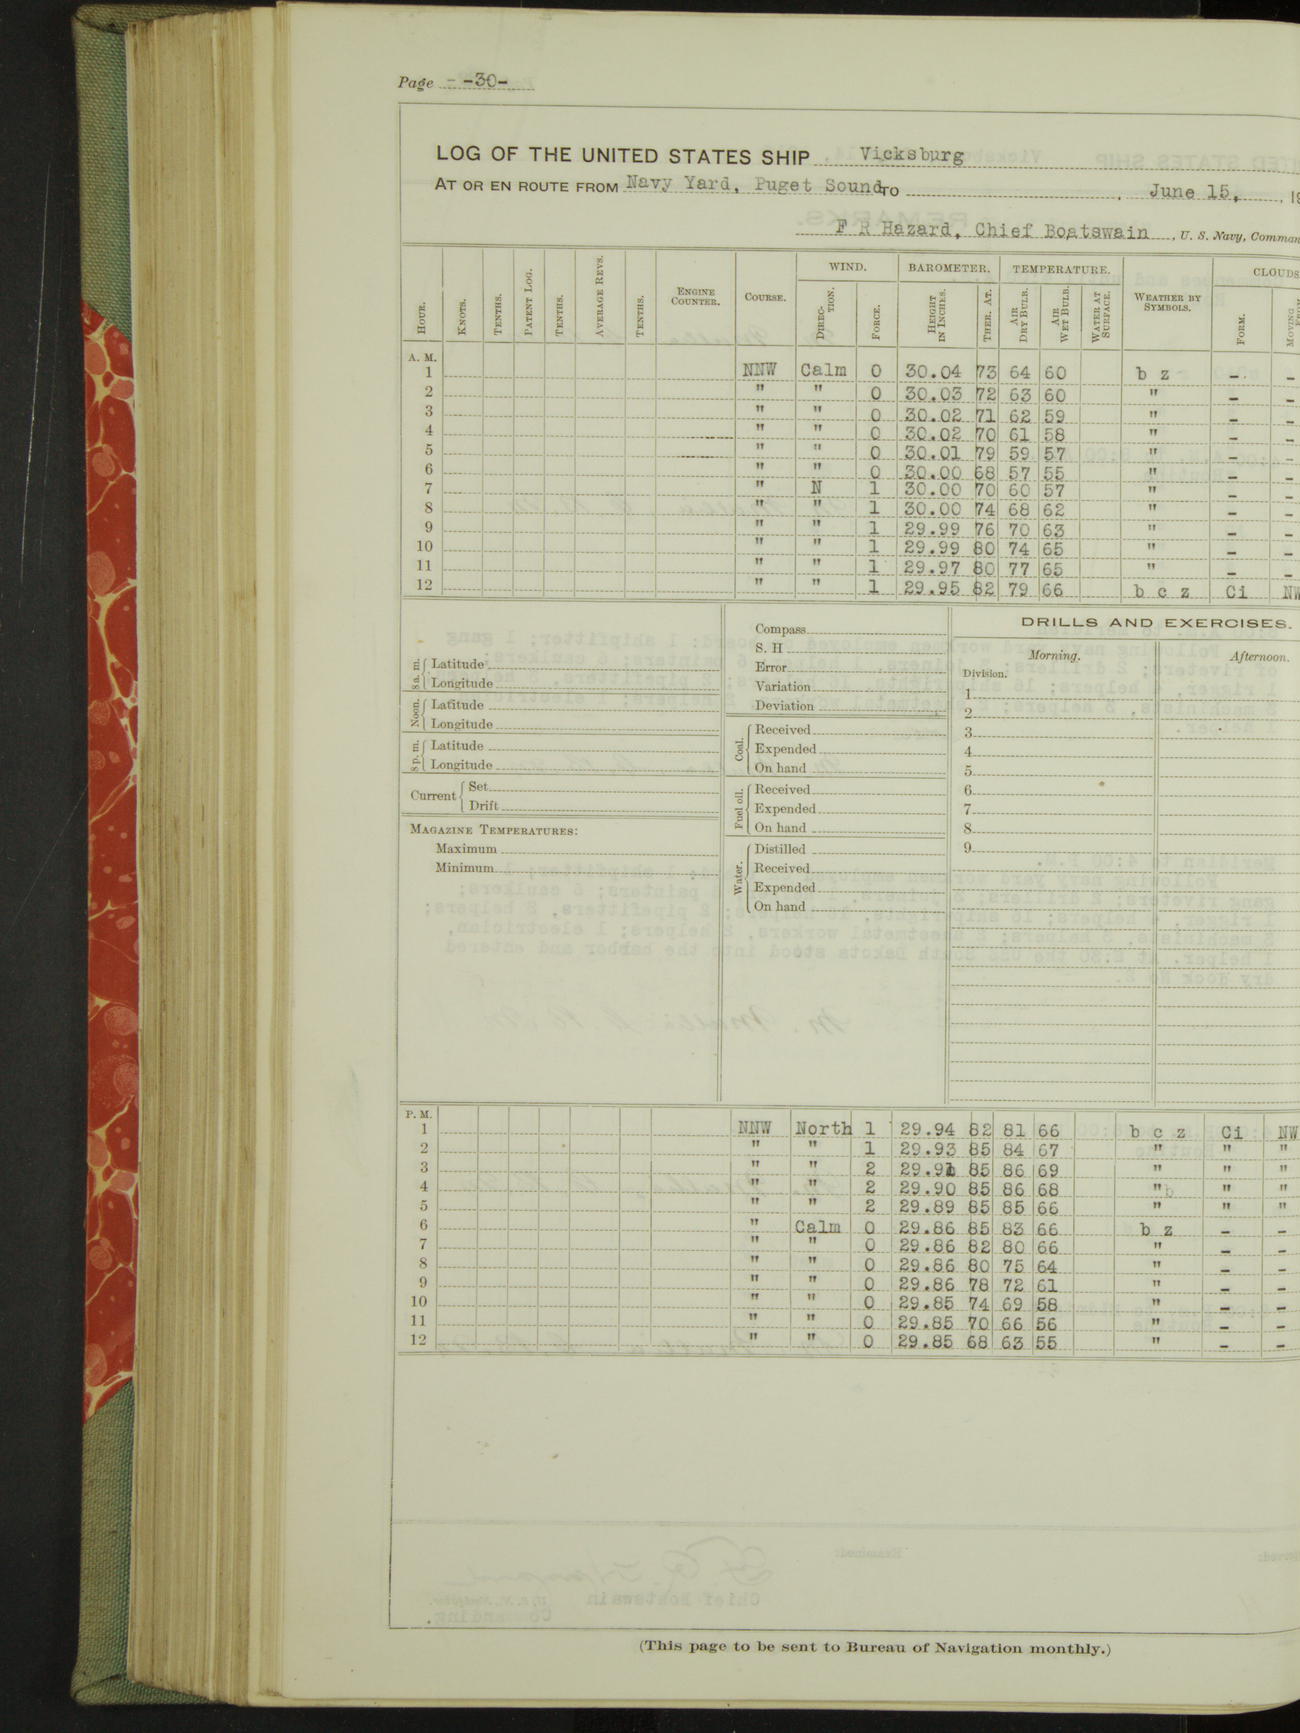 Page - -30-
LOG OF THE UNITED STATES SHIP Vicksburg
AT OR EN ROUTE FROM Navy Yard, Puget Sound, TO , June 15, , 19
F R Hazard, Chief Boatswain , U. S. Navy,
HOUR. KNOTS. TENTHS. PATENT LOG. TENTHS. AVERAGE REVS. TENTHS. ENGINE COUNTER. COURSE. WIND. DIRECTION. FORCE. BAROMETER. HEIGHT IN INCHES. THER. AT. TEMPERATURE. AIR DRY BULB. AIR WET BULB. WATER AT SURFACE. WEATHER BY SYMBOLS. CLOUDS FORM. MOVING
A. M.
1 NNW Calm 0 30.04 73 64 60 b z - -
2 " " 0 30.03 72 63 60 " - -
3 " " 0 30.02 71 62 59 " - -
4 " " 0 30.02 70 61 58 " - -
5 " " 0 30.01 79 59 57 " - -
6 " " 0 30.00 68 57 55 " - -
7 " N 1 30.00 70 60 57 " - -
8 " " 1 30.00 74 68 62 " - -
9 " " 1 29.99 76 70 63 " - -
10 " " 1 29.99 80 74 65 " - -
11 " " 1 29.97 80 77 65 " - -
12 " " 1 29.95 82 79 66 b c z Ci NW
8 a. m. Latitude
Longitude
Noon. Latitude
Longitude
8 p. m. Latitude
Longitude
Current Set
Drift
MAGAZINE TEMPERATURES:
Maximum
Minimum
Compass
S. H
Error
Variation
Deviation
Coal. Received
Expended
On hand
Fuel oil. Received
Expended
On hand
Water. Distilled
Received
Expended
On hand
DRILLS AND EXERCISES.
Morning. Afternoon.
Division.
1
2
3
4
5
6
7
8
9
P. M.
1 NNW North 1 29.94 82 81 66 b c z Ci NW
2 " " 1 29.93 85 84 67 " " "
3 " " 2 29.91 85 86 69 " " "
4 " " 2 29.90 85 86 68 " " "
5 " " 2 29.89 85 85 66 " " "
6 " Calm 0 29.86 85 83 66 b z - -
7 " " 0 29.86 82 80 66 " - -
8 " " 0 29.86 80 75 64 " - -
9 " " 0 29.86 78 72 61 " - -
10 " " 0 29.85 74 69 58 " - -
11 " " 0 29.85 70 66 56 " - -
12 " " 0 29.85 68 63 55 " - -
(This page to be sent to Bureau of Navigation monthly.)